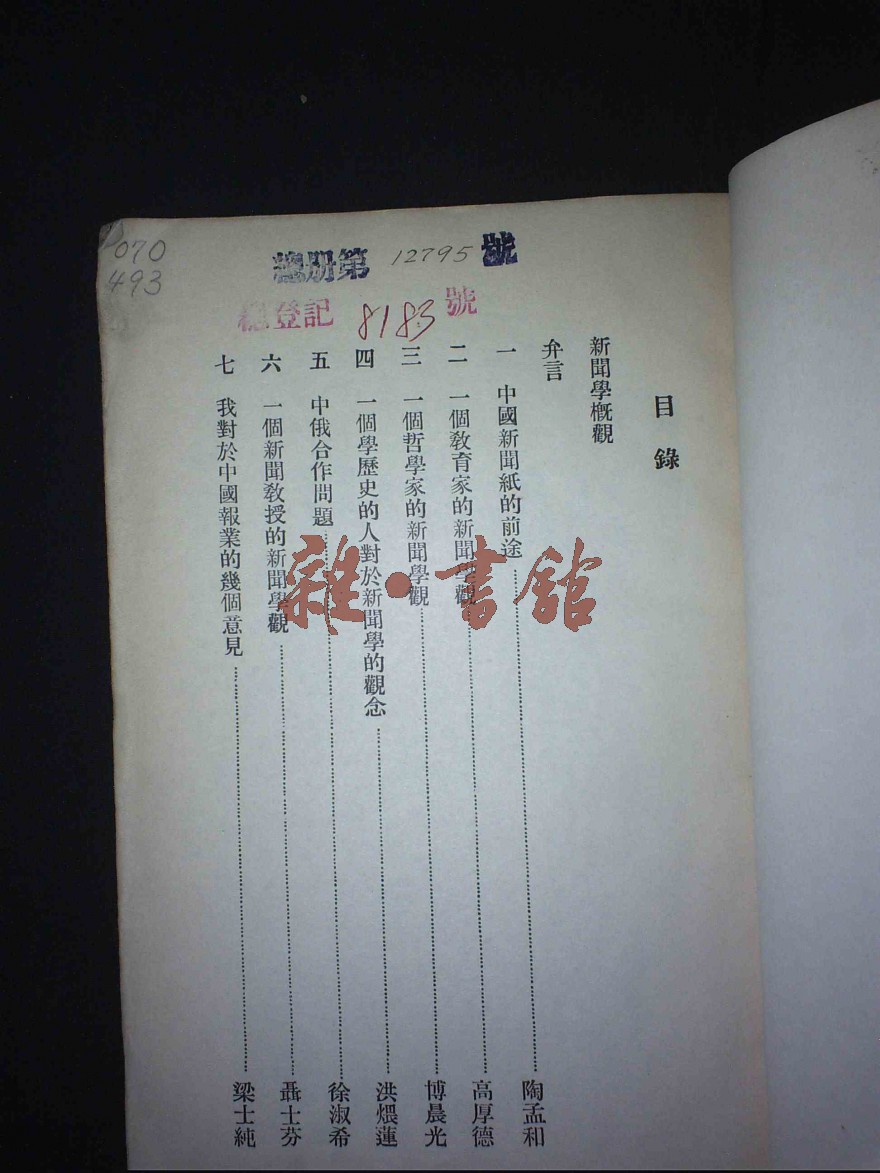 070
493
總册第 12795 號
總登記 8183 號
目錄
新聞學概觀
弁言
一 中國新聞紙的前途……陶孟和
二 一個教育家的新聞學觀……高厚德
三 一個哲學家的新聞學觀……博晨光
四 一個學歷史的人對於新聞學的觀念……洪煨蓮
五 中俄合作問題……徐淑希
六 一個新聞教授的新聞學觀……聶士芬
七 我對於中國報業的幾個意見……梁士純
雜·書館